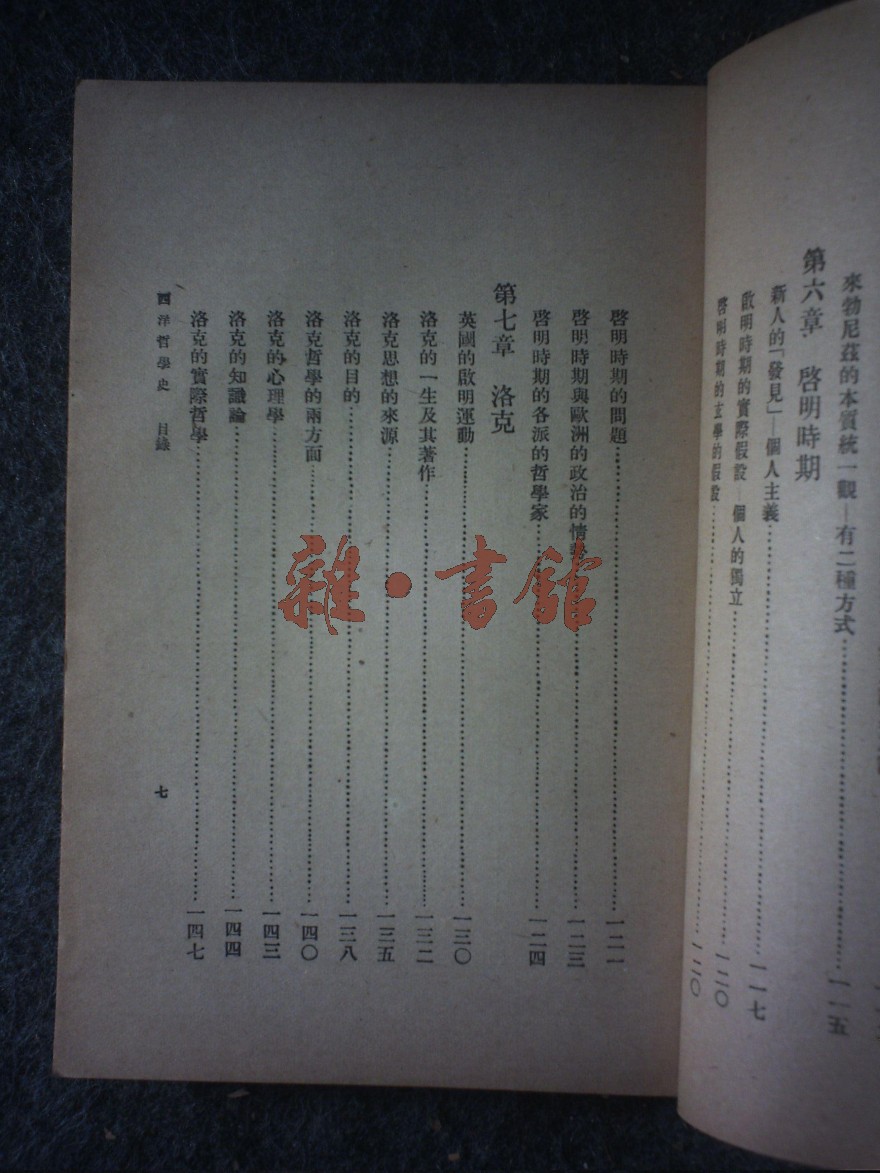 來勃尼茲的本質統一觀—有二種方式……一一五
第六章 啓明時期
新人的「發見」—個人主義……一一七
啟明時期的實際假設—個人的獨立……一二〇
啓明時期的玄學的假設……一二〇
啓明時期的問題……一二一
啓明時期與歐洲的政治的情……一二三
啓明時期的各派的哲學家……一二四
第七章 洛克
英國的啟明運動……一三〇
洛克的一生及其著作……一三二
洛克思想的來源……一三五
洛克的目的……一三八
洛克哲學的兩方面……一四〇
洛克的心理學……一四三
洛克的知識論……一四四
洛克的實際哲學……一四七
西洋哲學史 目錄 七
雜·書館